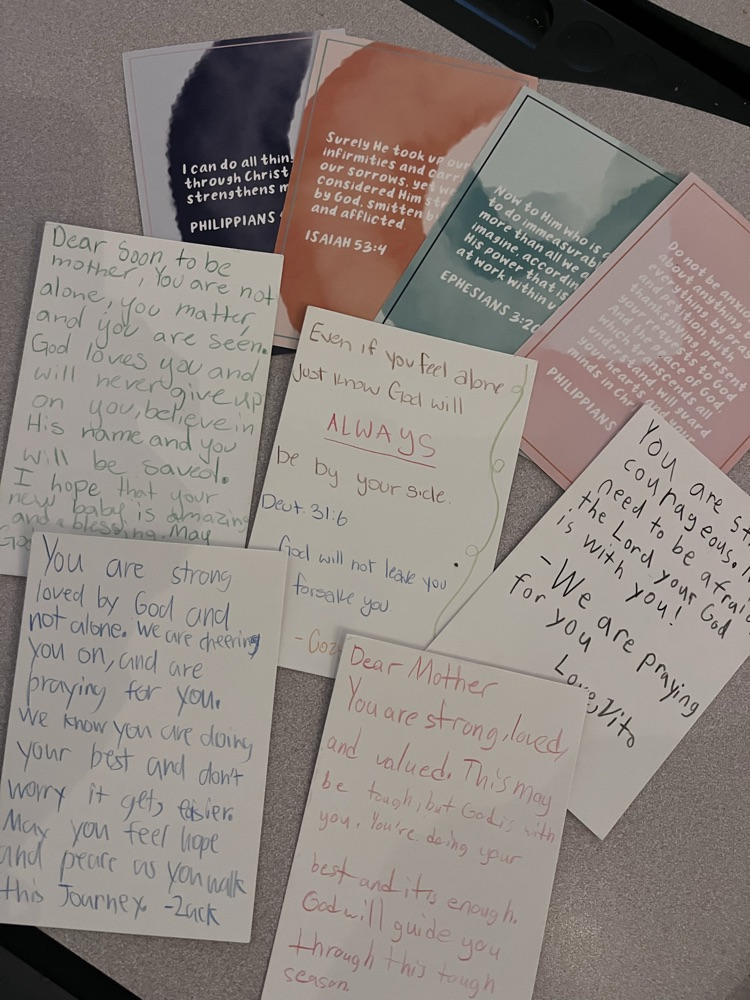 I can do all thin
through Christ
strengthens m
PHILIPPIANS
Surely He took up our
infirmities and carr
our sorrows, yet we
considered Him str
by God, smitten b
and afflicted.
ISAIAH 53:4
Now to Him who is
to do immeasurab
more than all we a
imagine accordin
His power that is
at work within u
EPHESIANS 3:20
Do not be anx
about anything,
everything by pra
and petition with
thanksgiving present
your requests to God
And the peace of God
which transcends all
understand will guard
your hearts and your
minds in Chr
PHILIPPIANS
Dear Soon to be
mother, You are not
alone, you matter,
and you are seen.
God loves you and
will never give up
on you, believe in
His name and you
will be saved.
I hope that your
new baby is amazing
and a blessing. May
Go
Even if you feel alone
just know God will
ALWAYS
be by your side.
Deut. 31:6
God will not leave you
forsake you.
- Goz
You are st
courageous. N
need to be afraid
the Lord your God
is with you!
- We are praying
for you
Love, Vito
You are strong
loved by God and
not alone. We are cheering
you on, and are
praying for you.
We know you are doing
your best and don't
worry it gets easier.
May you feel hope
and peace as you walk
this Journey. -Zack
Dear Mother
You are strong, loved,
and valued. This may
be tough, but God is with
you. You're doing your
best and it is enough.
God will guide you
through this tough
season.